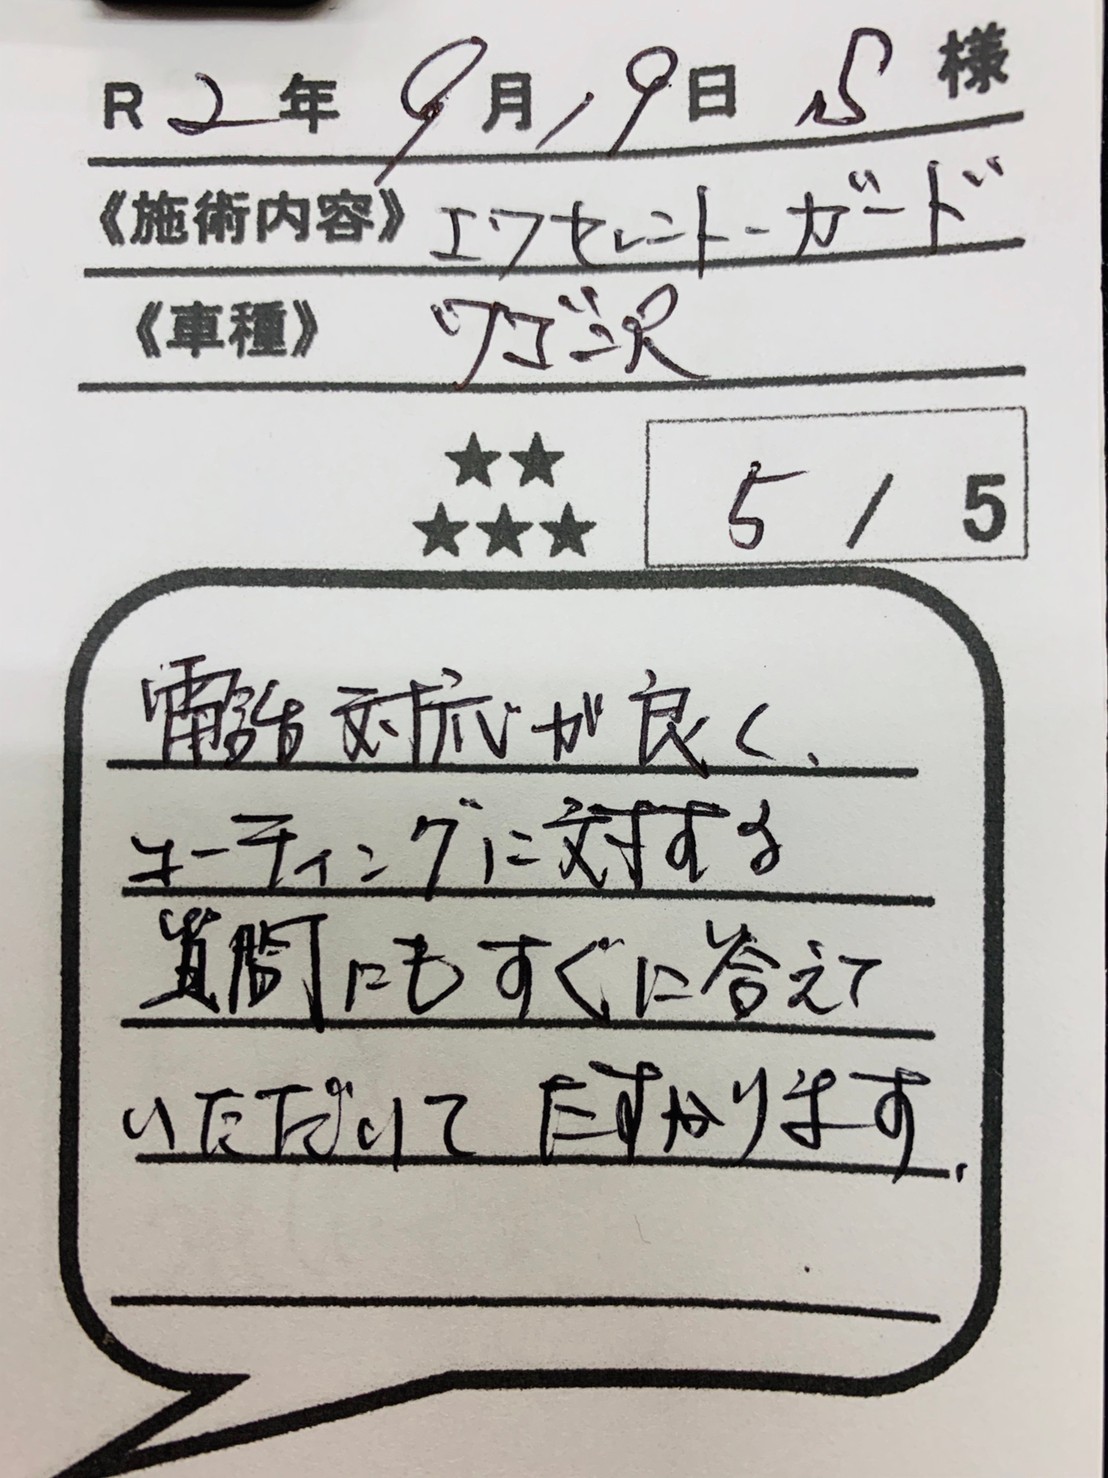 R 2年 9月19日 S 様
《施術内容》エクセレントガード
《車種》ワゴンR
★★
★★★ 5 / 5
電話対応が良く、
コーティングに対する
質問にもすぐに答えて
いただいてたすかります.